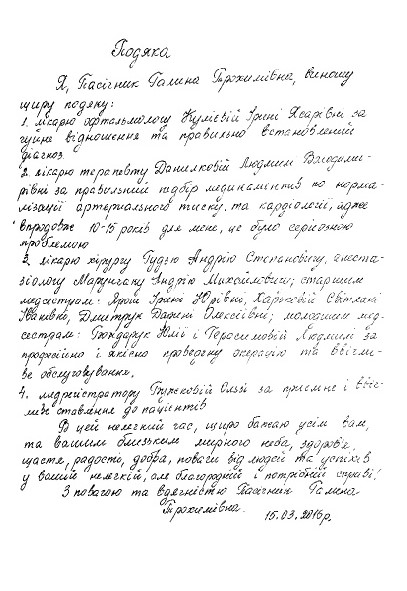 Подяка
Я, Пасічник Галина Трохимівна, виношу
щиру подяку:
1. лікарю офтальмологу Кулієвій Ірині Ясарівні за
чуйне відношення та правильно встановлений
діагноз.
2. лікарю терапевту Данилковій Людмилі Володими-
рівні за правильний підбір медикаментів по норма-
лізації артеріального тиску, та кардіології, адже
впродовж 10-15 років для мене, це було серйозною
проблемою
3. лікарю хірургу Гудзю Андрію Степановичу, анесте-
зіологу Марунчаку Андрію Михайловичу; старшим
медсестрам: Ірині Юріївні, Світлані
Іванівні, Дмитрук Олексіївні; молодшим мед-
сестрам: Бондарук Юлії і Герасимовій Людмилі за
професійно і якісно проведену операцію та ввічли-
ве обслуговування.
4. медреєстратору Ользі за приємне і ввіч-
ливе ставлення до пацієнтів
В цей нелегкий час, щиро бажаю усім вам,
та вашим близьким мирного неба, здоров'я,
щастя, радості, добра, поваги від людей та успіхів
у вашій нелегкій, але благородній і потрібній справі!
З повагою та вдячністю Пасічник Галина
Трохимівна.
15.03.2016р.